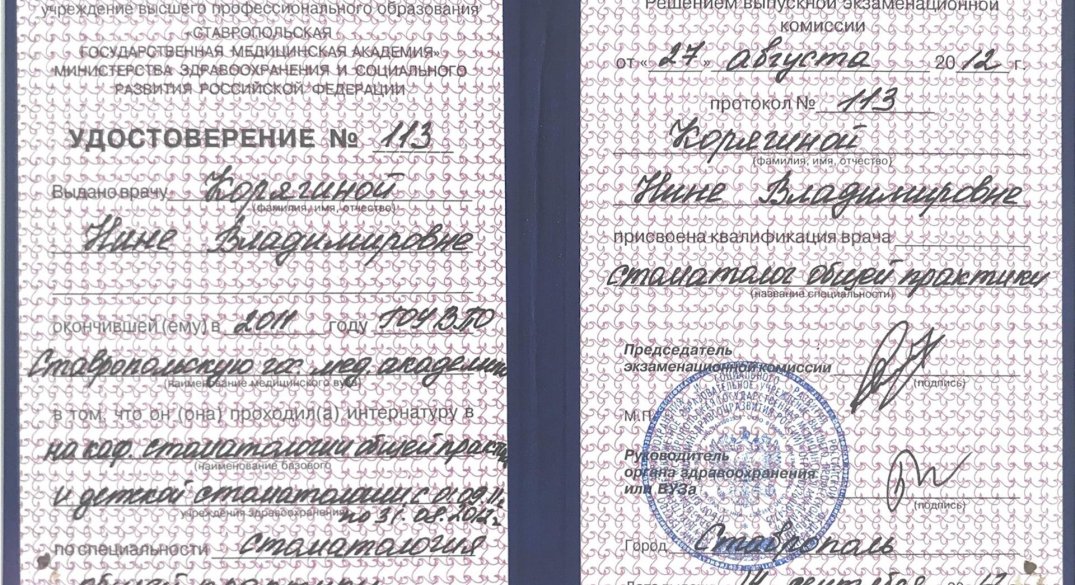 учреждение высшего профессионального образования
«СТАВРОПОЛЬСКАЯ
ГОСУДАРСТВЕННАЯ МЕДИЦИНСКАЯ АКАДЕМИЯ»
МИНИСТЕРСТВА ЗДРАВООХРАНЕНИЯ И СОЦИАЛЬНОГО
РАЗВИТИЯ РОССИЙСКОЙ ФЕДЕРАЦИИ
УДОСТОВЕРЕНИЕ № 113
Выдано врачу Корягиной
(фамилия, имя, отчество)
Нине Владимировне
окончившей (ему) в 2011 году ГОУ ВПО
Ставропольскую гос. мед. академию
(наименование медицинского вуза)
в том, что он (она) проходил(а) интернатуру в
на каф. стоматологии общей практи
(наименование базового
и детской стоматологии с 01.09.11г.
учреждения здравоохранения)
по 31.08.2012г.
по специальности стоматология
общей практики
Решением выпускной экзаменационной
комиссии
от «27» августа 2012 г.
протокол № 113
Корягиной
(фамилия, имя, отчество)
Нине Владимировне
присвоена квалификация врача
стоматолог общей практики
(название специальности)
Председатель
экзаменационной комиссии
(подпись)
М.П.
Руководитель
органа здравоохранения
или ВУЗа
(подпись)
Город Ставрополь
14 сентября